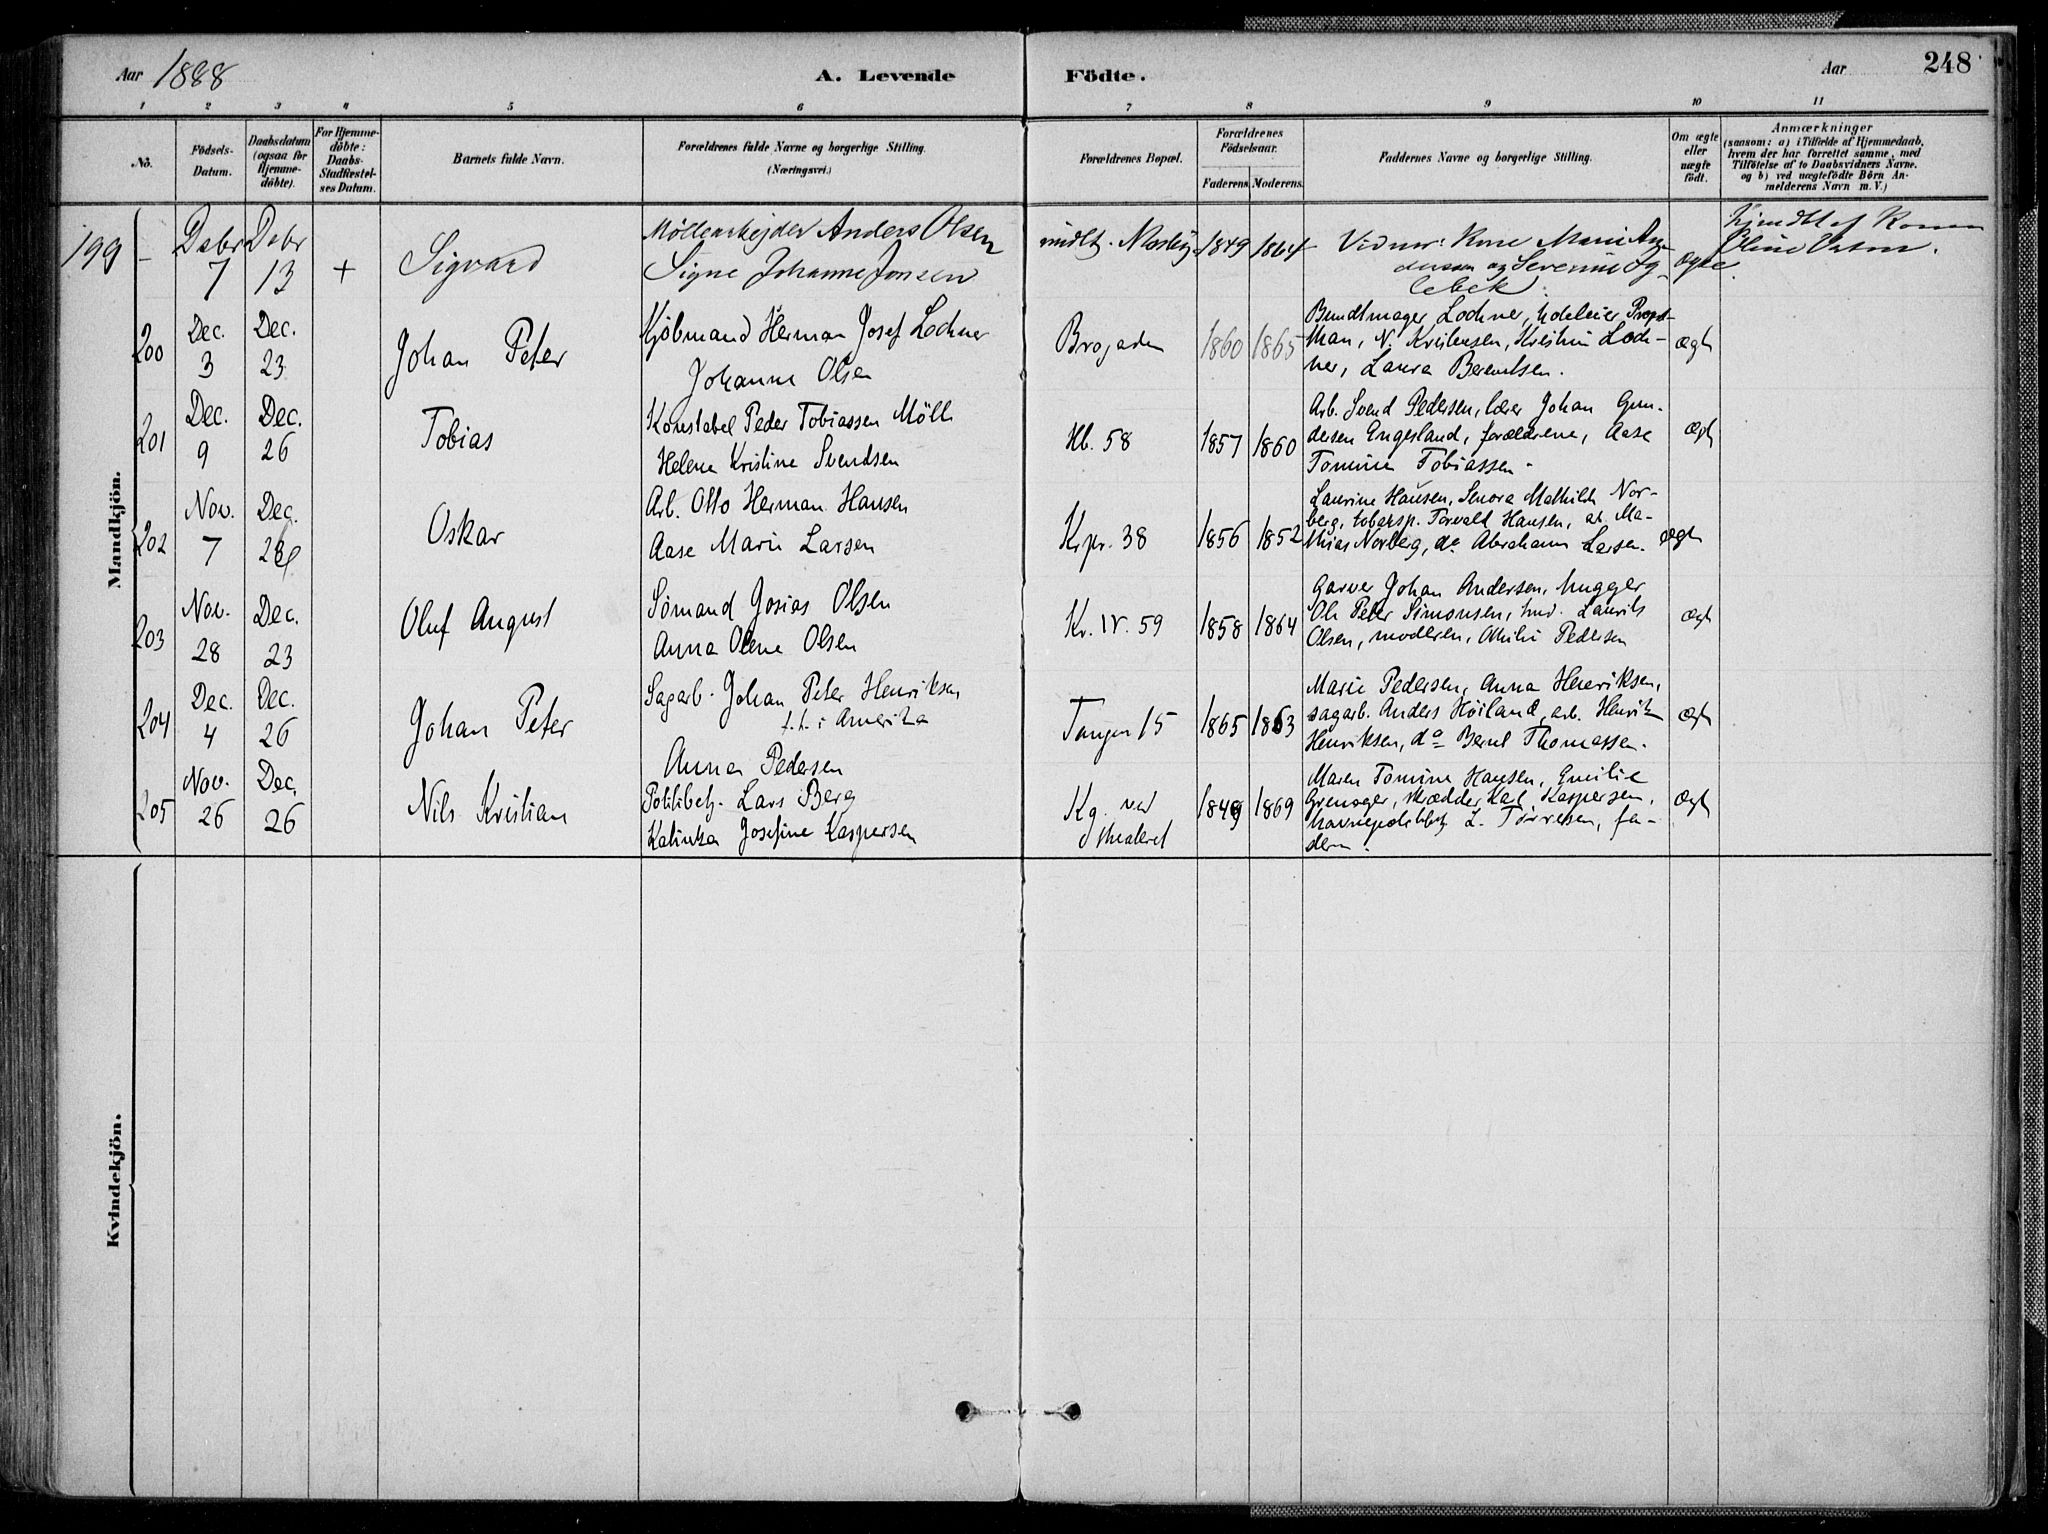 Aar 1888
A. Levende Födte.
Aar
248
1 2 3 4 5 6 7 8 9 10 11
No.
Födsels-Datum.
Daabsdatum (ogsaa för Hjemme-döbte).
For Hjemme-döbte: Daabs-Stadfæstel-ses Datum.
Barnets fulde Navn.
Forældrenes fulde Navne og borgerlige Stilling.
(Næringsvei.)
Forældrenes Bopæl.
Forældrenes Födselsaar.
Faderens. Moderens.
Faddernes Navne og borgerlige Stilling.
Om ægte eller uægte födt.
Anmærkninger
(saasom: a) i Tilfælde af Hjemmedaab,
hvem der har forrettet samme, med
Tilföielse af to Daabsvidners Navne.
og b) ved uægtefödte Börn An-
melderens Navn m. V.)
Mandkjön.
199 Debr 7 Debr 13 + Sigvard
Möllearbejder Anders Olsen
Signe Johanne Jonsen
indt. Mosby 1849 1864
Vidner: Marie An-
dersen og Severine Og-
lebek.
Ægte
af Konen
Oline
200 Dec. 3 Dec. 23 Johan Peter
Kjöbmand Herman Josef Lochner
Johanne Olsen
Brogaden 1860 1865
Bundtmager Lochner, hoteleier Propst-
man, N. Kristensen, Kristine Loch-
ner, Laura Berentsen.
Ægt
201 Dec. 9 Dec. 26 Tobias
Konstabel Peder Tobiassen Möll
Helene Kristine Svendsen
Hb. 58 1857 1860
Arb. Svend Pedersen, lærer Johan Gun-
dersen Engesland, forældrene, Aase
Tomine Tobiassen.
Ægt
202 Nov. 7 Dec. 26 Oskar
Arb. Otto Herman Hansen
Aase Marie Larsen
Krpr. 38 1856 1852
Laurine Hansen, Senora Mathilde Nor-
berg, tobaksp. Torvald Hansen, ar. Ma-
thias Norberg, do Abraham Larsen.
Ægt
203 Nov. 28 Dec. 23 Oluf August
Sömand Josias Olsen
Anna Olene Olsen
Kr. IV. 59 1858 1864
Garver Johan Andersen, hugger
Ole Peter Simonsen, Laurits
Olsen, moderen, Othilie Pedersen
Ægt
204 Dec. 4 Dec. 26 Johan Peter
Sagarb. Johan Peter Henriksen
f. t. i Amerika
Anna Pedersen
Tangen 15 1865 1863
Marie Pedersen, Anna Henriksen,
sagarb. Anders Höiland, arb. Henrik
Henriksen, do Bernt Thomassen.
Ægt
205 Nov. 26 Dec. 26 Nils Kristian
Politibetj. Lars Berg
Kalinka Josefine Kaspersen
Kg. ved theateret 1849 1869
Maren Tomine Hansen, Emilie
Grenager, skrædder Karl Kaspersen,
havnepolitibtj L. Törresen, fa-
deren.
Ægt
Kvindekjön.